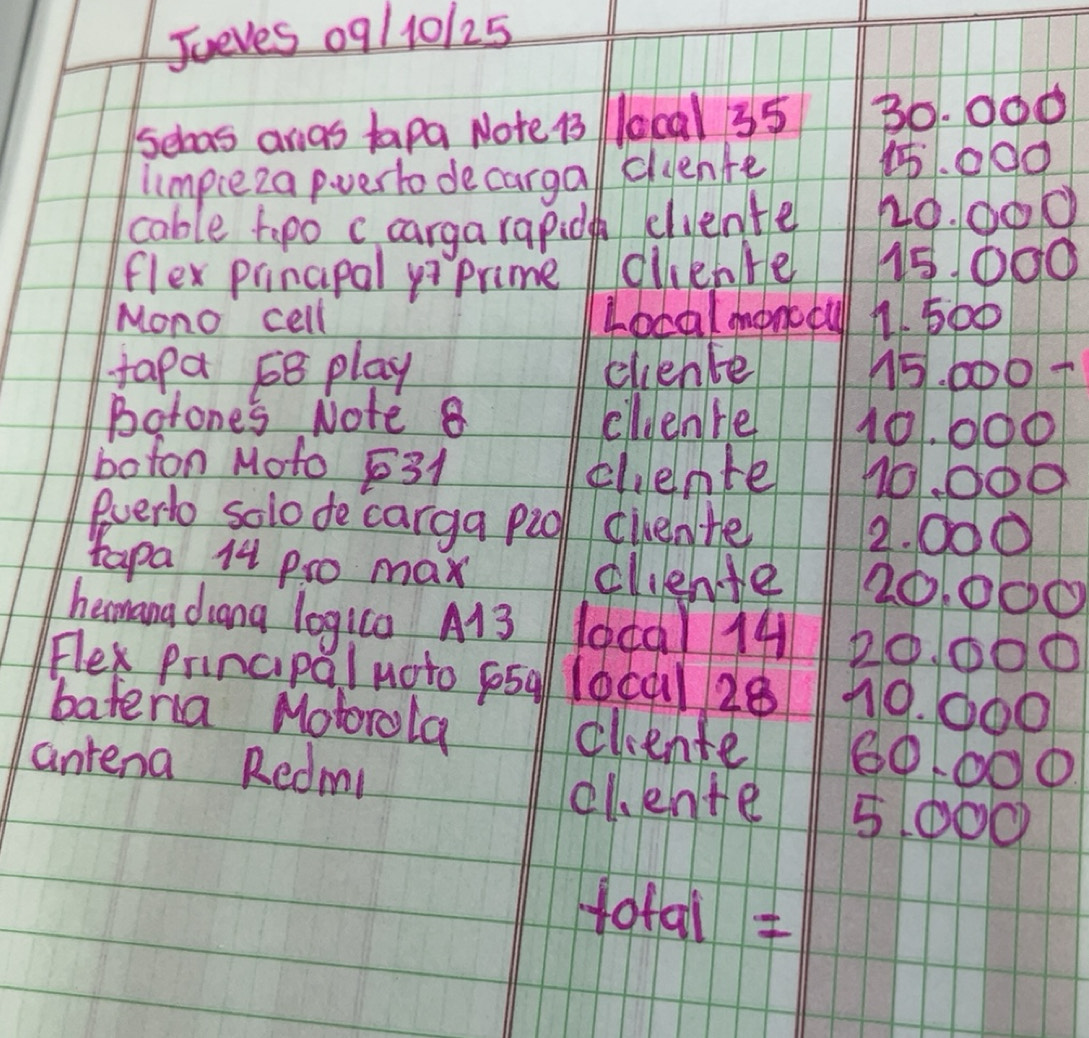 Jueves 09/10/25
Sebas arias tapa Note 13 local 35 30.000
limpieza puerto de carga cliente 15.000
cable tipo c carga rapida cliente 20.000
flex principal y7 prime cliente 15.000
Mono cell Local monocell 1.500
tapa G8 play cliente 15.000 -
Botones Note 8 cliente 10.000
boton Moto G31 cliente 10.000
Puerto solo de carga P20 cliente 2.000
tapa 14 pro max cliente 20.000
hermana diana logica A13 local 14 20.000
Flex principal moto G54 local 28 10.000
bateria Motorola cliente 60.000
antena Redmi cliente 5.000
total =